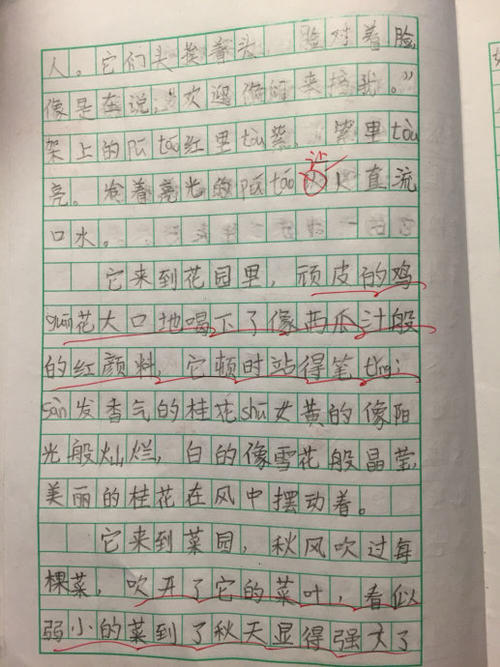 人。它们头挨着头 脸对着脸
像是在说，“欢迎你们来摘我。”
架上的pú táo红里tòu紫， 紫里tòu
亮。 着亮光的pú táo让人直流
口水。
它来到花园里，顽皮的鸡
guān花大口地喝下了像西瓜汁般
的红颜料，它顿时站得笔tǐng；
sàn发香气的桂花shù 黄的像阳
光般灿烂，白的像雪花般晶莹，
美丽的桂花在风中摆动着。
它来到菜园，秋风吹过每
棵菜，吹开了它的菜叶，看似
弱小的菜到了秋天显得强大了